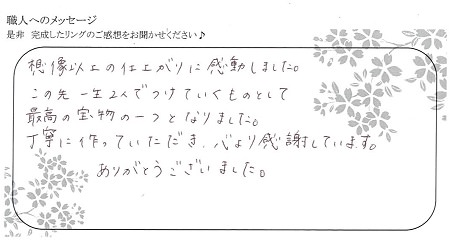 職人へのメッセージ
是非 完成したリングのご感想をお聞かせください♪
想像以上の仕上がりに感動しました。
この先一生2人でつけていくものとして
最高の宝物の一つとなりました。
丁寧に作っていただき、心より感謝しています。
ありがとうございました。